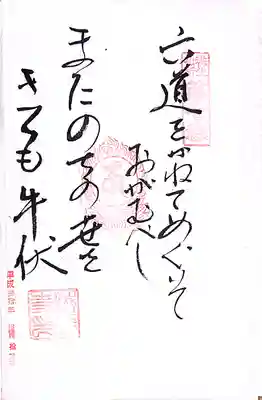 六道をかねてめぐりて
おがむべし
またのちの世を
きくも牛伏
平成